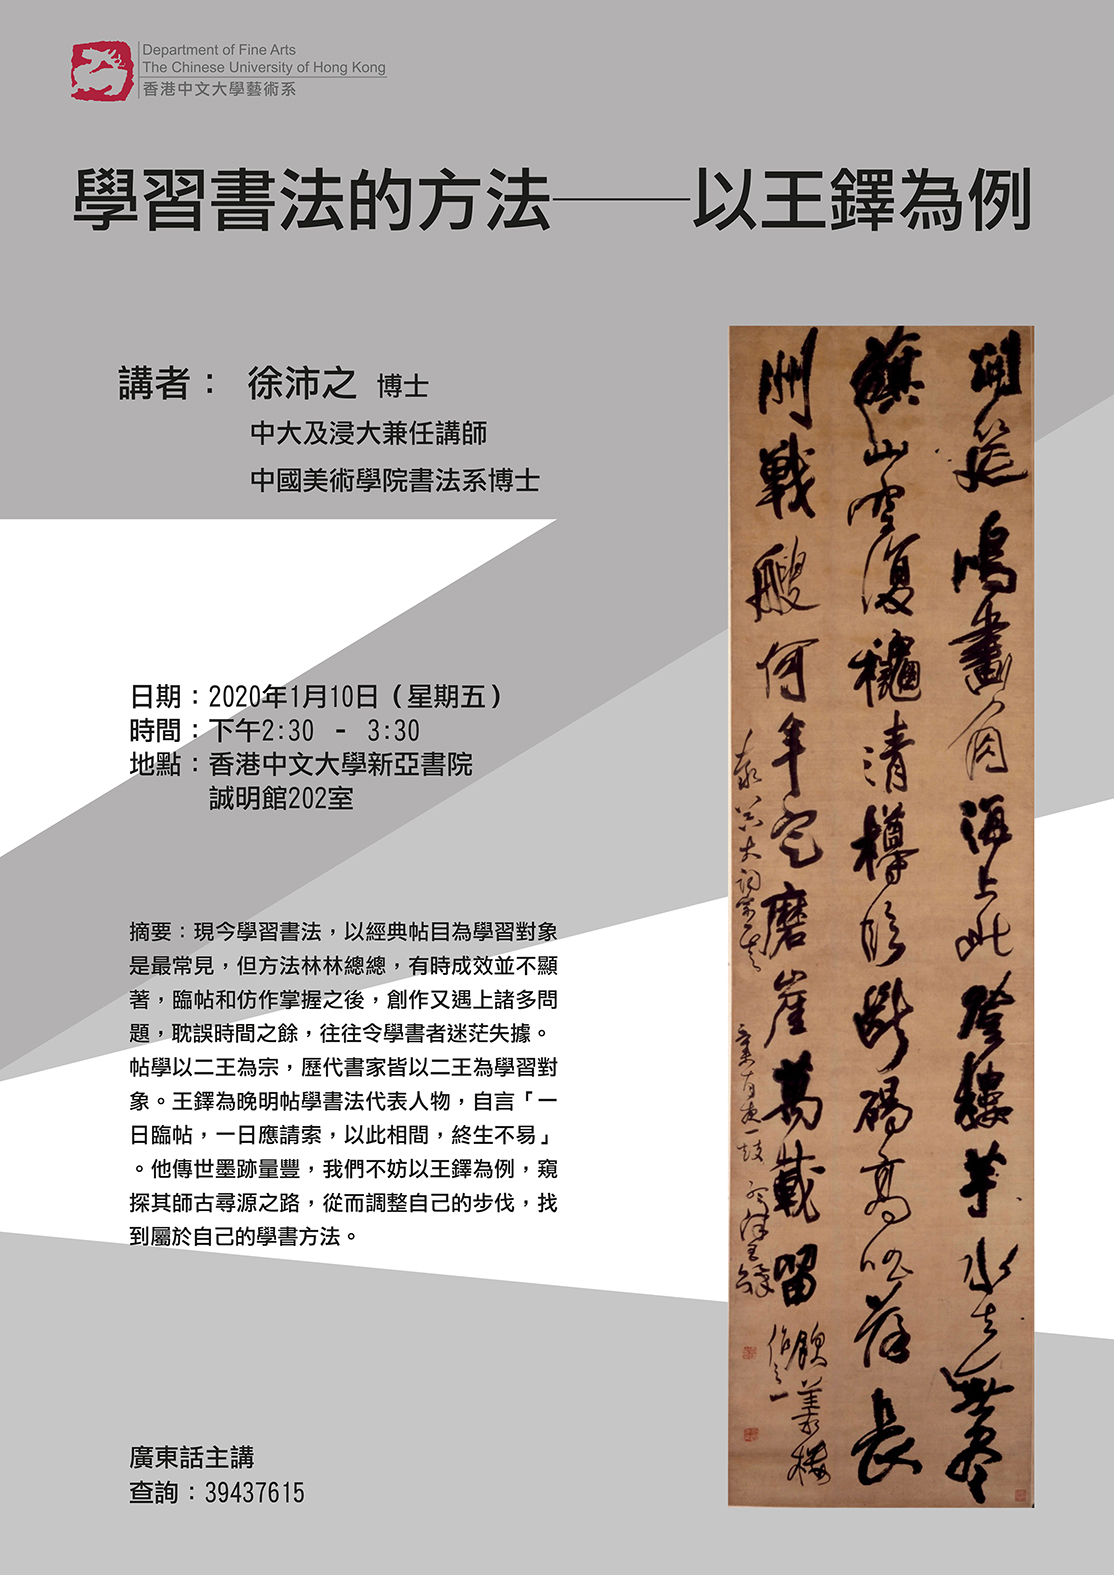 Department of Fine Arts
The Chinese University of Hong Kong
香港中文大學藝術系
學習書法的方法——以王鐸為例
講者： 徐沛之 博士
中大及浸大兼任講師
中國美術學院書法系博士
日期：2020年1月10日（星期五）
時間：下午2:30 - 3:30
地點：香港中文大學新亞書院
誠明館202室
摘要：現今學習書法，以經典帖目為學習對象
是最常見，但方法林林總總，有時成效並不顯
著，臨帖和仿作掌握之後，創作又遇上諸多問
題，耽誤時間之餘，往往令學書者迷茫失據。
帖學以二王為宗，歷代書家皆以二王為學習對
象。王鐸為晚明帖學書法代表人物，自言「一
日臨帖，一日應請索，以此相間，終生不易」
。他傳世墨跡量豐，我們不妨以王鐸為例，窺
探其師古尋源之路，從而調整自己的步伐，找
到屬於自己的學書方法。
廣東話主講
查詢：39437615
鳴畫角海上此登樓羊水去無盡
旗山空復穐清樽臨斷碣高咏落長
洲戰艘何年定磨崖萬載留